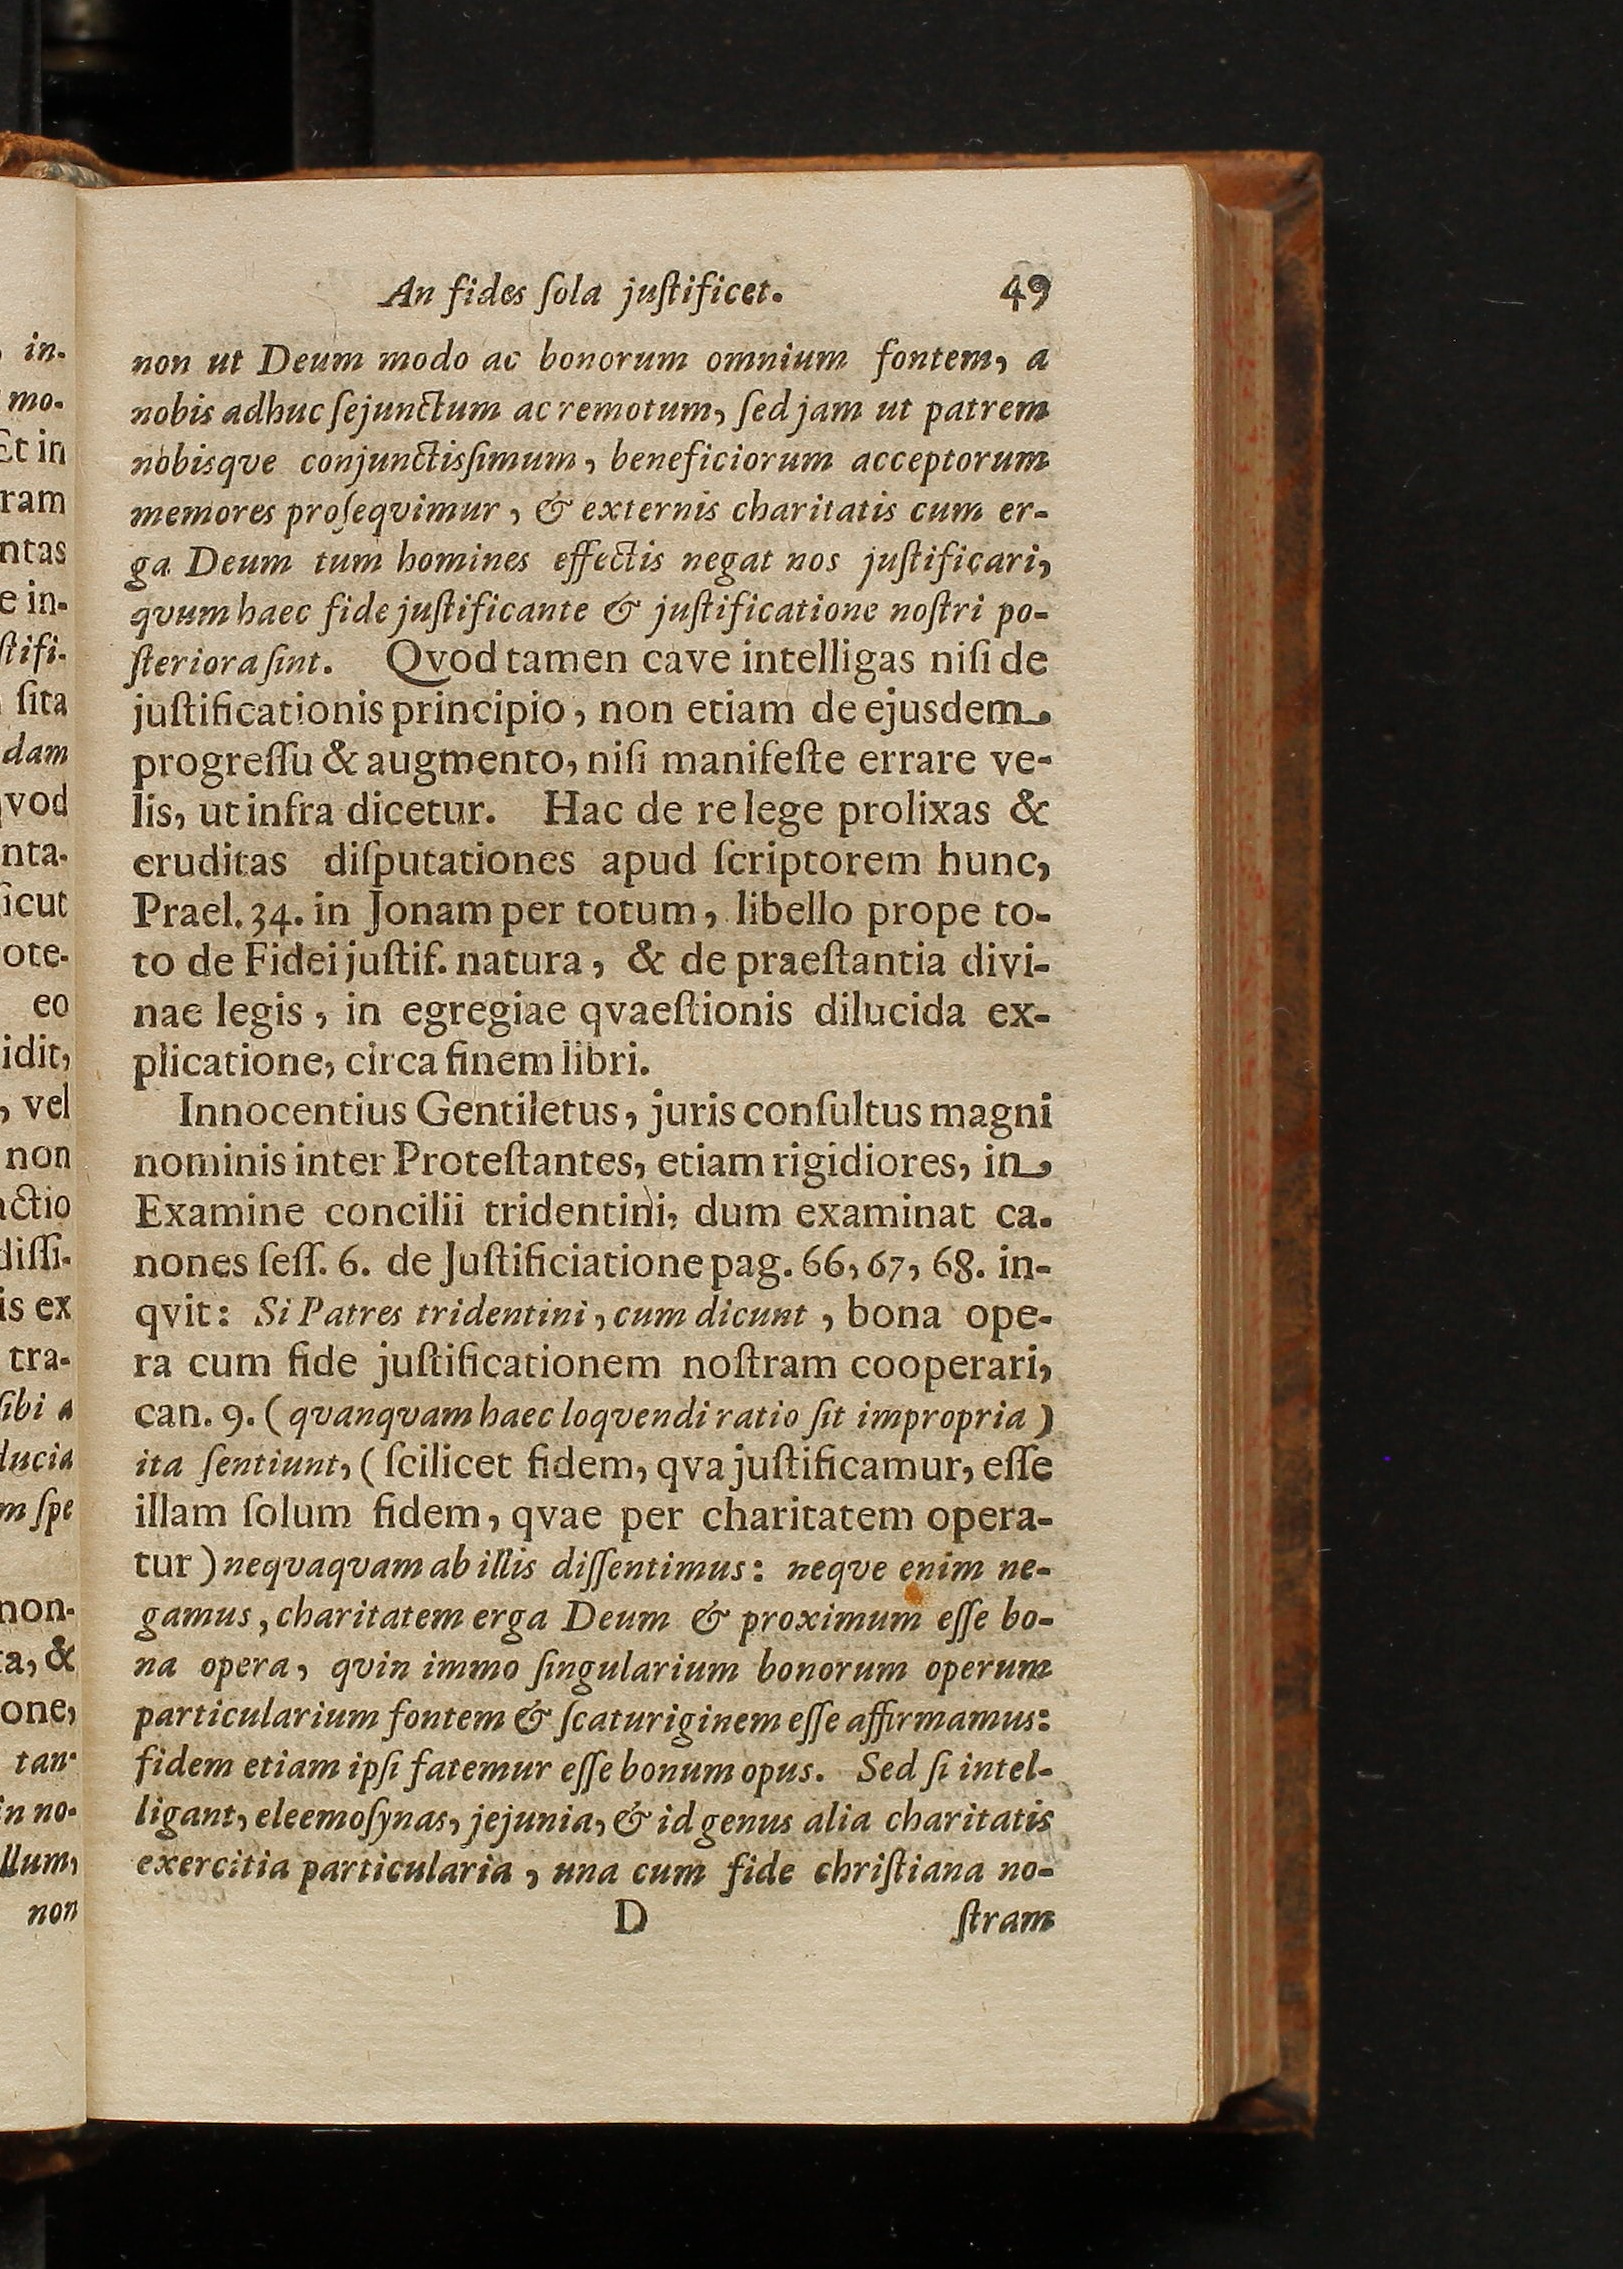 An fides ſola juſtificet. 49
non ut Deum modo ac bonorum omnium fontem, a
nobis adhuc ſejunctum ac remotum, ſed jam ut patrem
nobisqve conjunctisſimum, beneficiorum acceptorum
memores proſeqvimur, & externis charitatis cum er-
ga Deum tum homines effectis negat nos juſtificari,
qvum haec fide juſtificante & juſtificatione noſtri po-
ſteriora ſint. Qvod tamen cave intelligas niſi de
juſtificationis principio, non etiam de ejusdem.
progreſſu & augmento, niſi manifeſte errare ve-
lis, ut infra dicetur. Hac de re lege prolixas &
eruditas diſputationes apud ſcriptorem hunc,
Prael. 34. in Jonam per totum, libello prope to-
to de Fidei juſtif. natura, & de praeſtantia divi-
nae legis, in egregiae qvaeſtionis dilucida ex-
plicatione, circa finem libri.
Innocentius Gentiletus, juris conſultus magni
nominis inter Proteſtantes, etiam rigidiores, in
Examine concilii tridentini, dum examinat ca.
nones ſeſſ. 6. de Juſtificiatione pag. 66, 67, 68. in-
qvit: Si Patres tridentini, cum dicunt, bona ope-
ra cum fide juſtificationem noſtram cooperari,
can. 9. (qvanqvam haec loqvendi ratio ſit impropria)
ita ſentiunt, (ſcilicet fidem, qva juſtificamur, eſſe
illam ſolum fidem, qvae per charitatem opera-
tur) neqvaqvam ab illis diſſentimus: neqve enim ne-
gamus, charitatem erga Deum & proximum eſſe bo-
na opera, qvin immo ſingularium bonorum operum
particularium fontem & ſcaturiginem eſſe affirmamus:
fidem etiam ipſi fatemur eſſe bonum opus. Sed ſi intel-
ligant, eleemoſynas, jejunia, & id genus alia charitatis
exercitia particularia, una cum fide chriſtiana no-
D ſtram